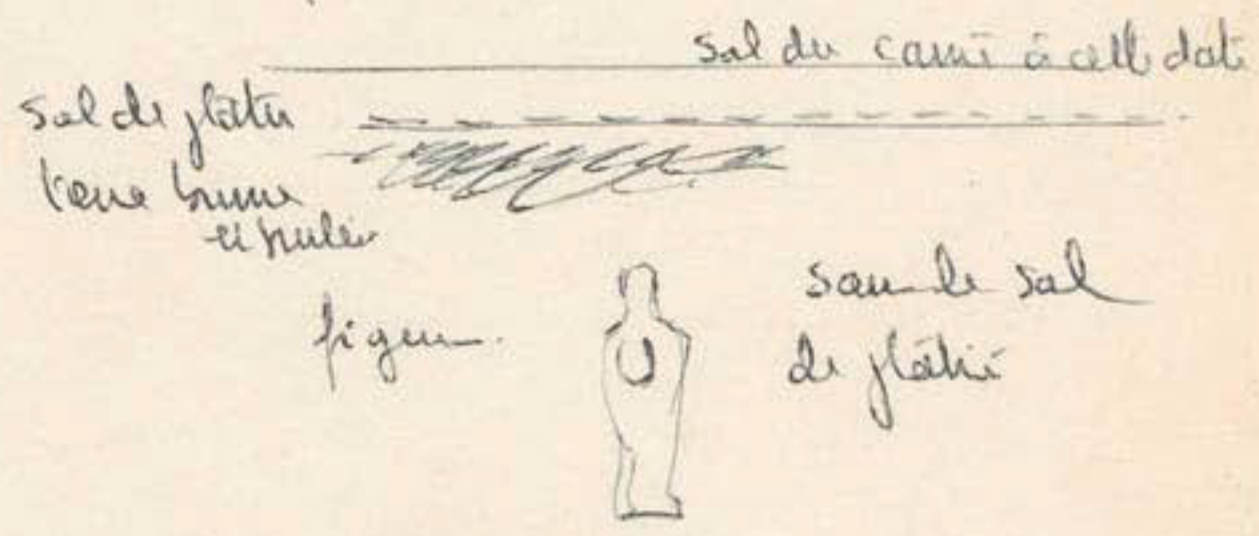 sol du carré à cette date
sol de plâtre
terre brune
figurine
sous le sol
de plâtre